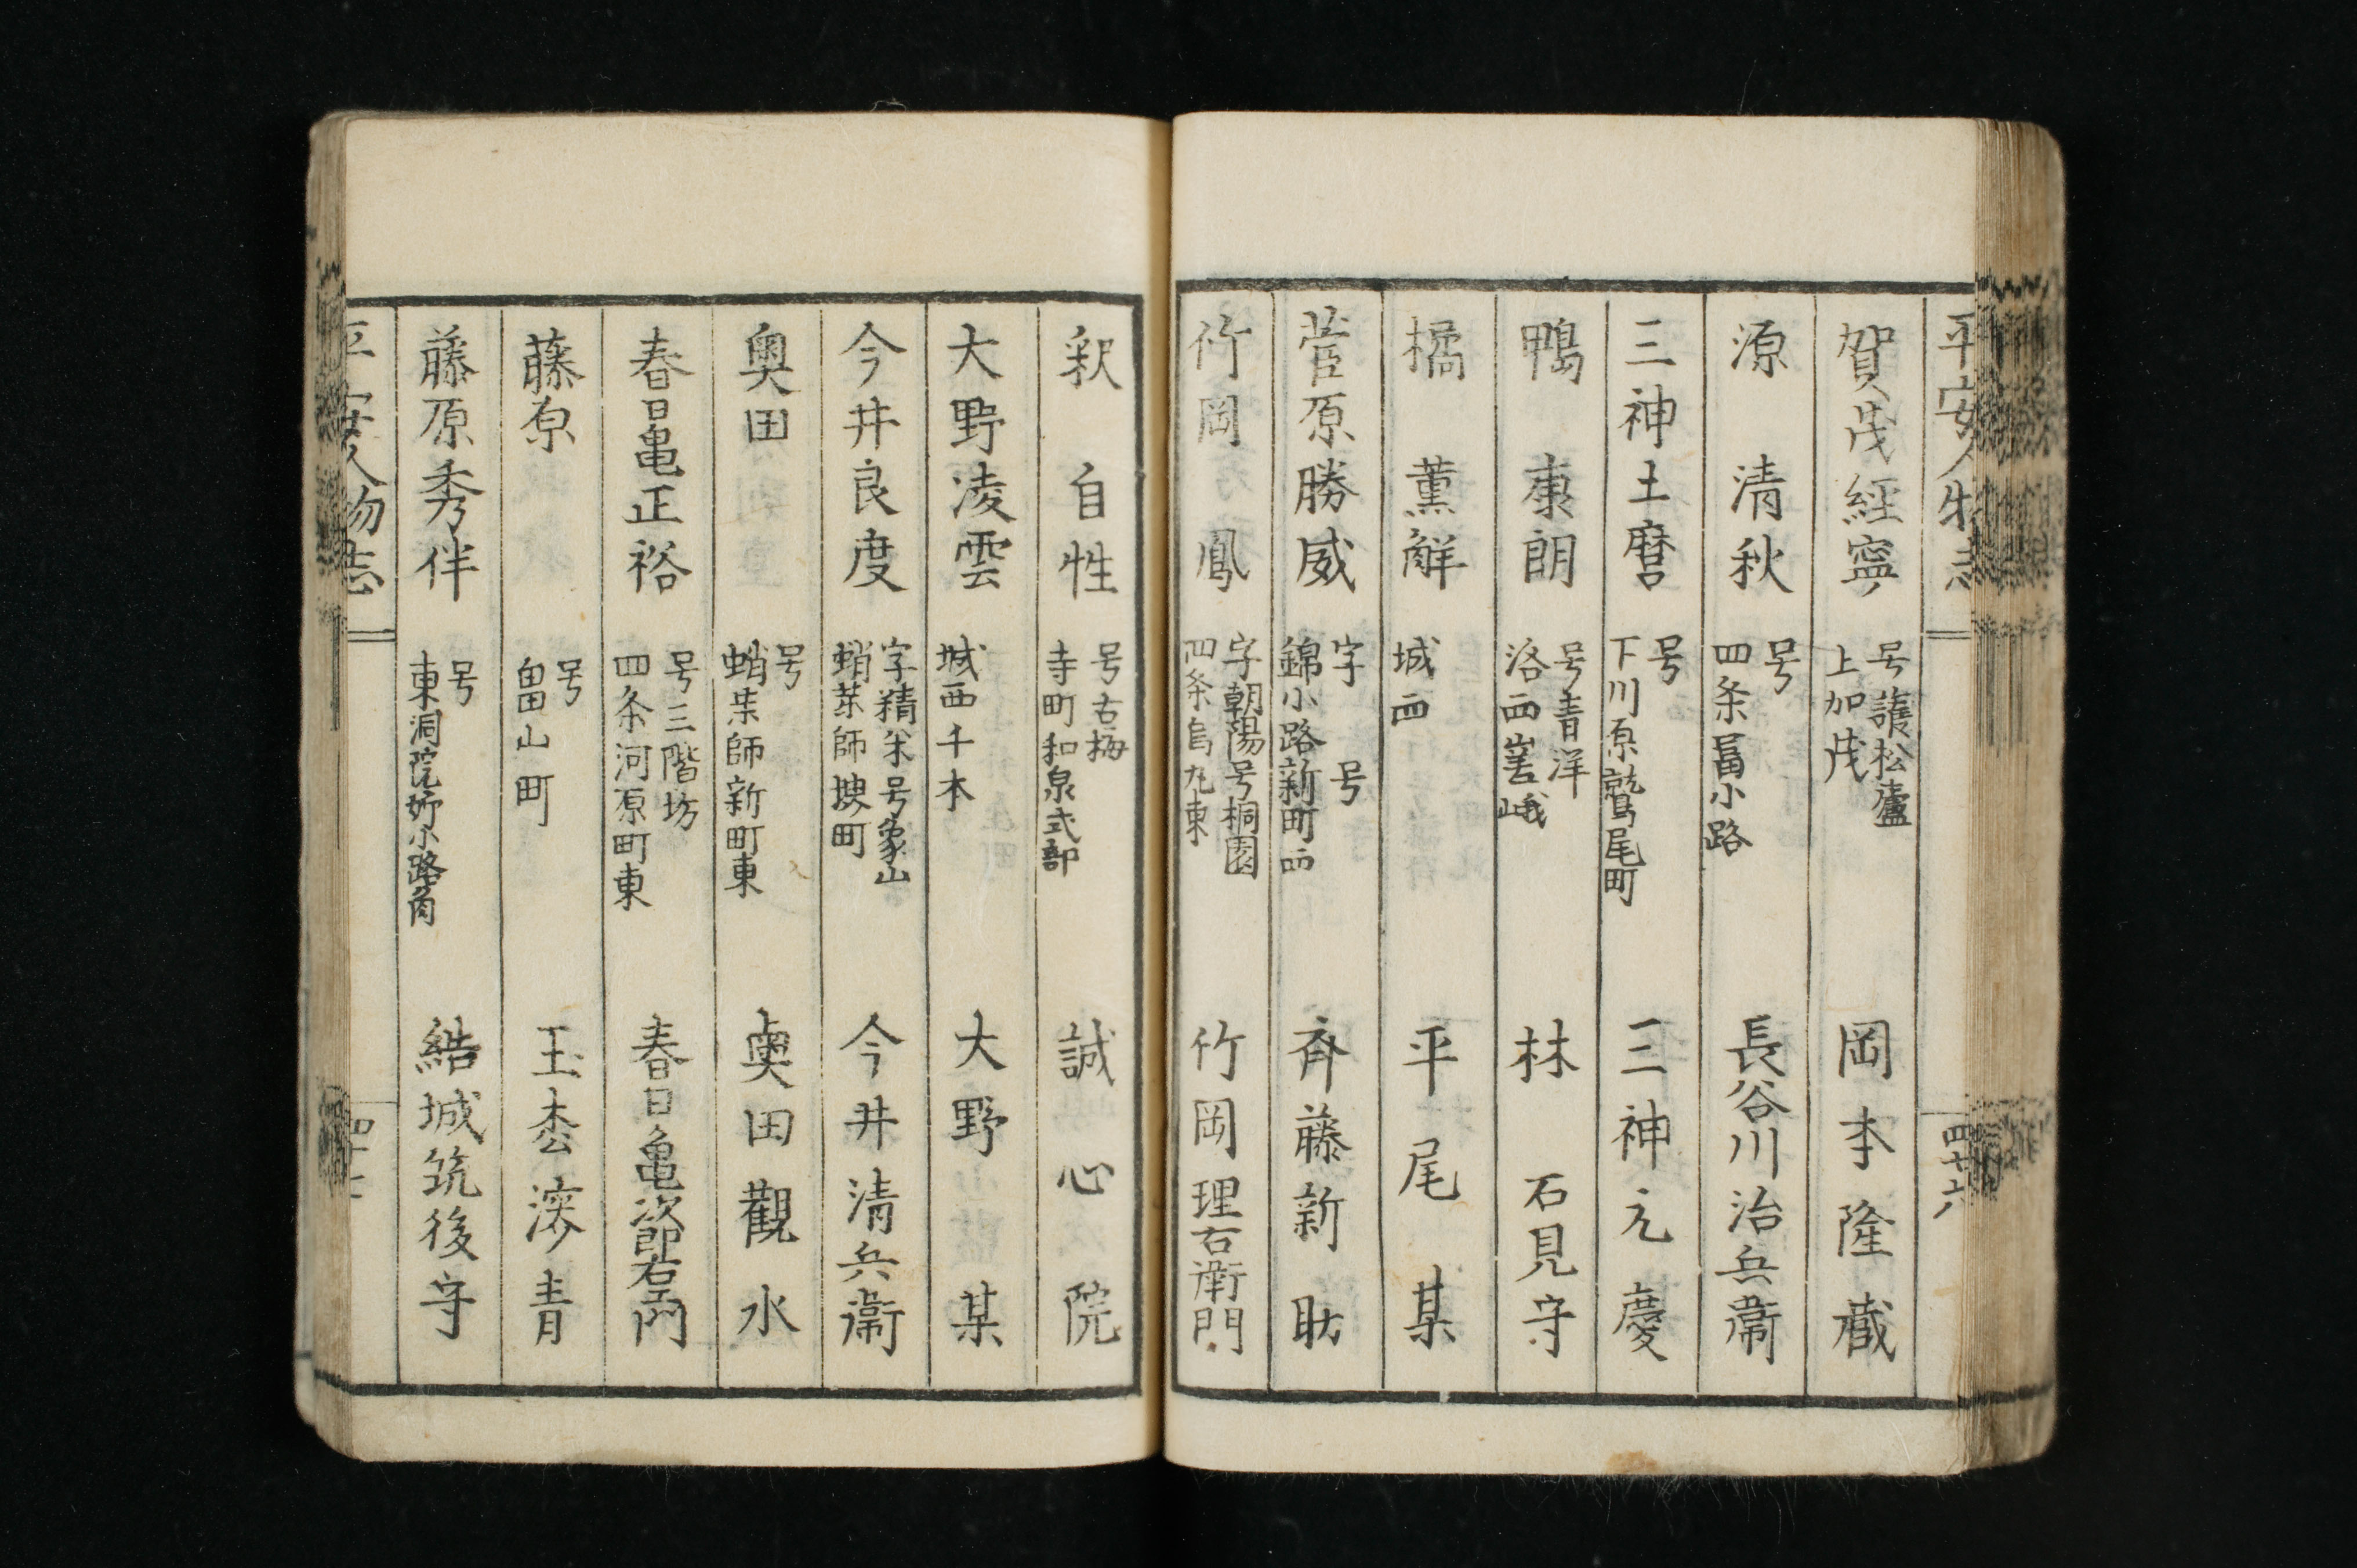 平安人物志 四十六
賀茂経寧 号護松廬 上加茂 岡本隆蔵
源 清秋 号 四条冨小路 長谷川治兵衛
三神土麿 号 下川原鷲尾町 三神元慶
鴨 康朗 号青洋 洛西嵳峨 林 石見守
橘 薫觧 城西 平尾某
菅原勝威 字 号 錦小路新町西 斉藤新助
竹岡 鳳 字朝陽号桐園 四条烏丸東 竹岡理右衛門
釈 自性 号古梅 寺町和泉式部 誠心院
大野凌雲 城西千本 大野某
今井良度 字精米号象山 蛸薬師堺町 今井清兵衛
奥田 号 蛸薬師新町東 奥田觀水
春日亀正裕 号三階坊 四条河原町東 春日亀次郎右衛門
藤原 号 畠山町 玉枩 青
藤原秀伴 号 東洞院姉小路角 結城筑後守
平安人物志 四十七